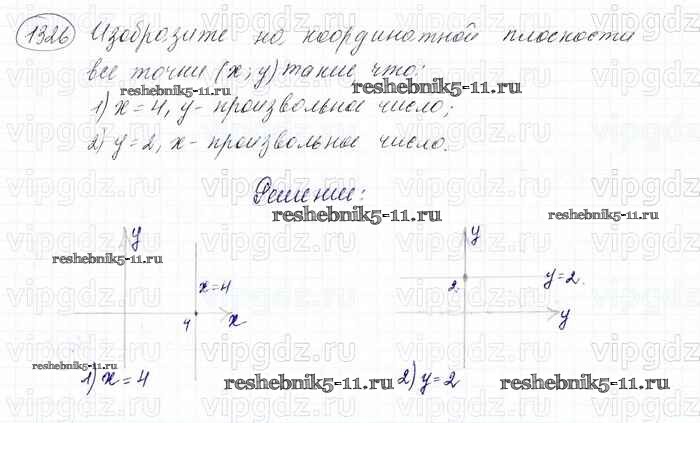 1326 Изобразите на координатной плоскости
все точки (x; y) такие что:
1) x = 4, y - произвольное число;
2) y = 2, x - произвольное число.
Решение:
y
x = 4
4
x
1) x = 4
y
2
y = 2.
y
2) y = 2
reshebnik5-11.ru
reshebnik5-11.ru
reshebnik5-11.ru
reshebnik5-11.ru
reshebnik5-11.ru
reshebnik5-11.ru
reshebnik5-11.ru
reshebnik5-11.ru
vipgdz.ru